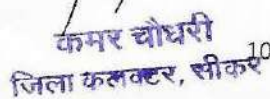 कमर चौधरी
जिला कलक्टर, सीकर
10